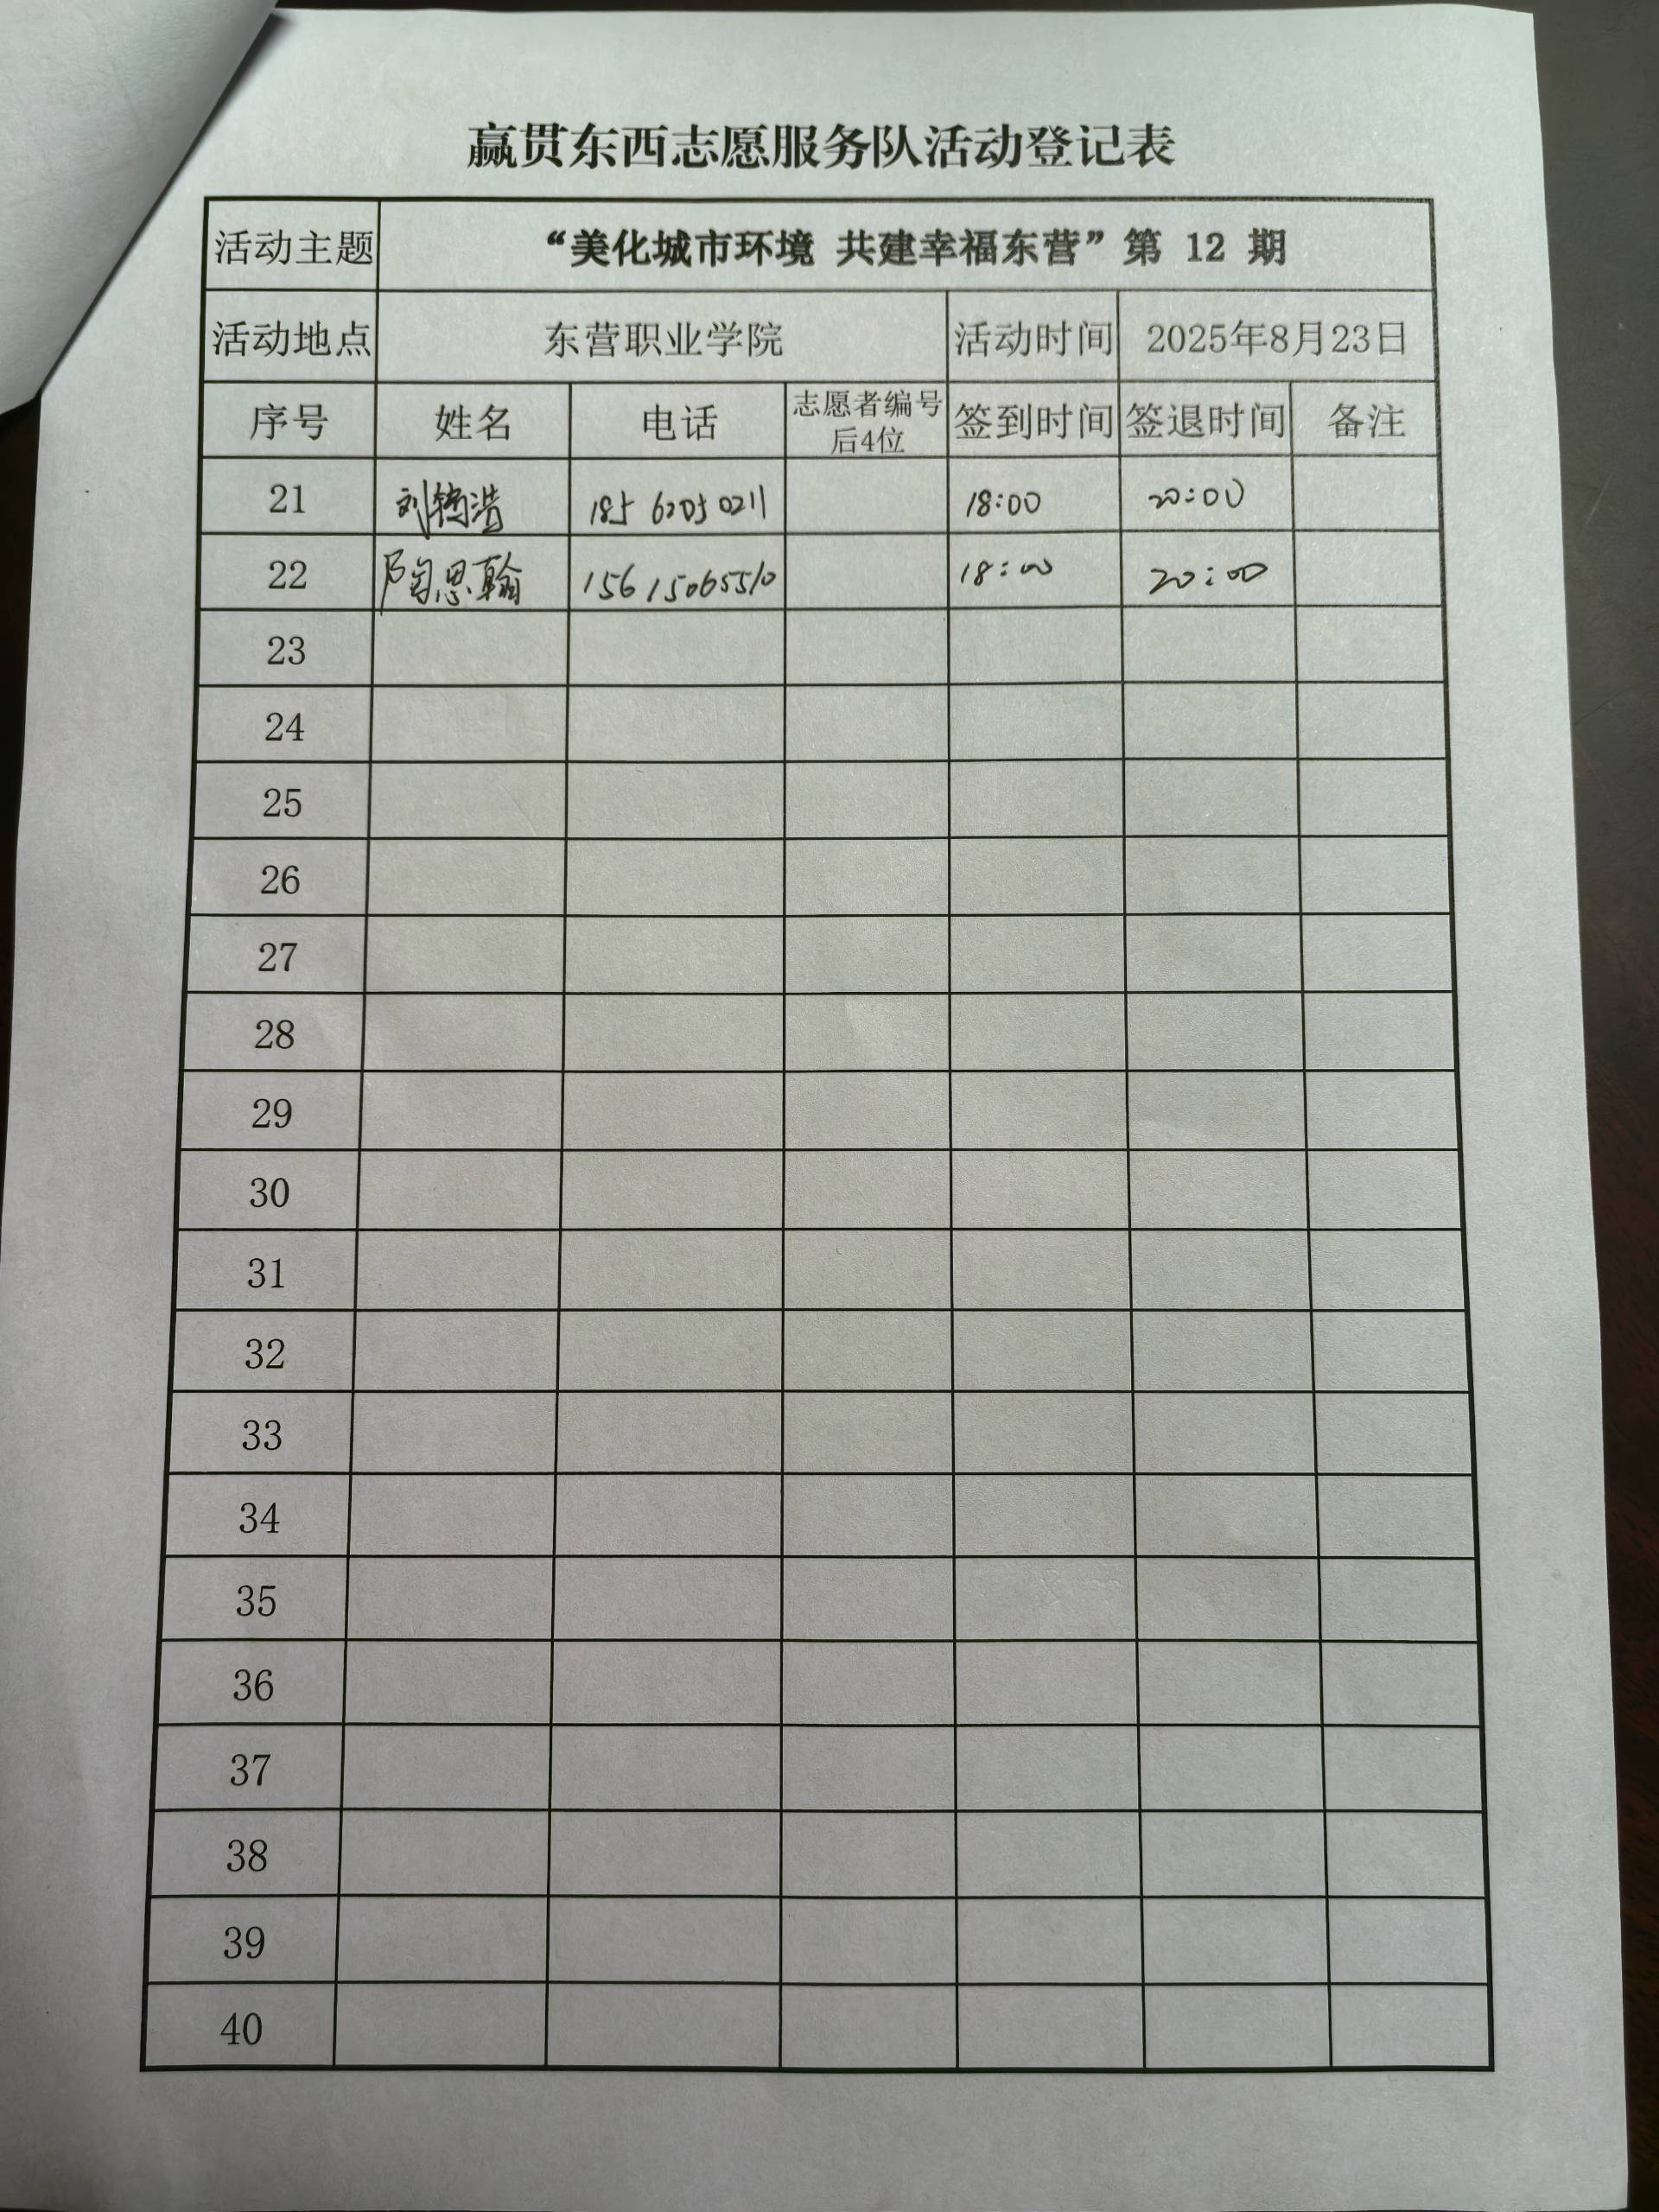 赢贯东西志愿服务队活动登记表
活动主题 “美化城市环境 共建幸福东营”第 12 期
活动地点 东营职业学院 活动时间 2025年8月23日
序号 姓名 电话 志愿者编号后4位 签到时间 签退时间 备注
21 刘 浩 185 6205 0211 18:00 20:00
22 陶思翰 15615065510 18:00 20:00
23
24
25
26
27
28
29
30
31
32
33
34
35
36
37
38
39
40